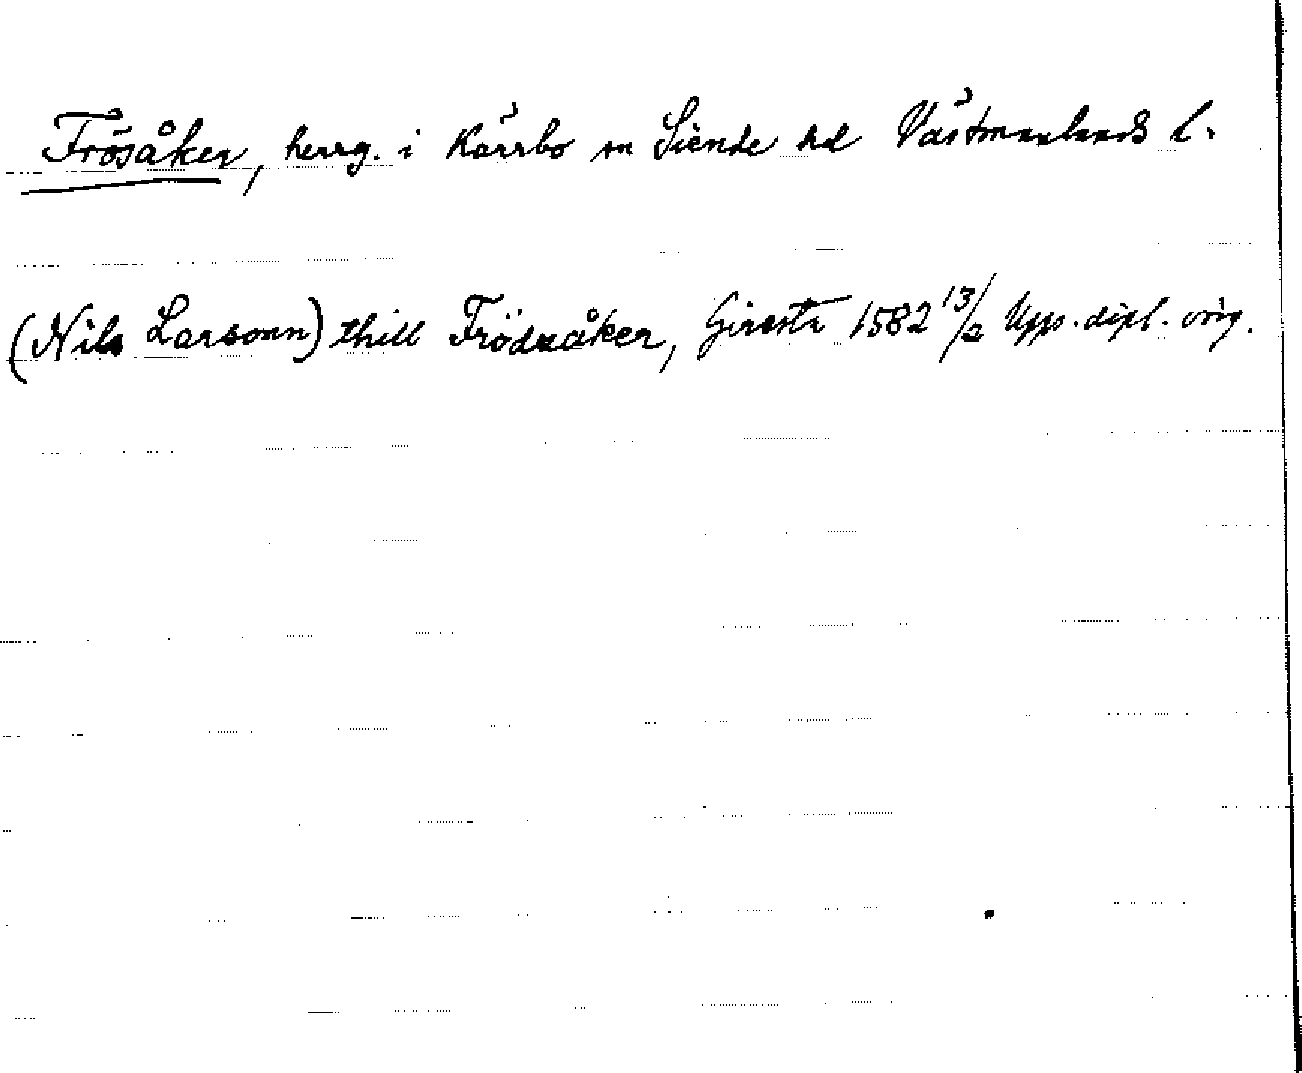 Frösåker, herrg. i Kärrbo sn Siende hd Västmanlands l.
(Nils Larsonn) thill Frödzåker, Giresta 1582 13/2 Upps. dipl. orig.